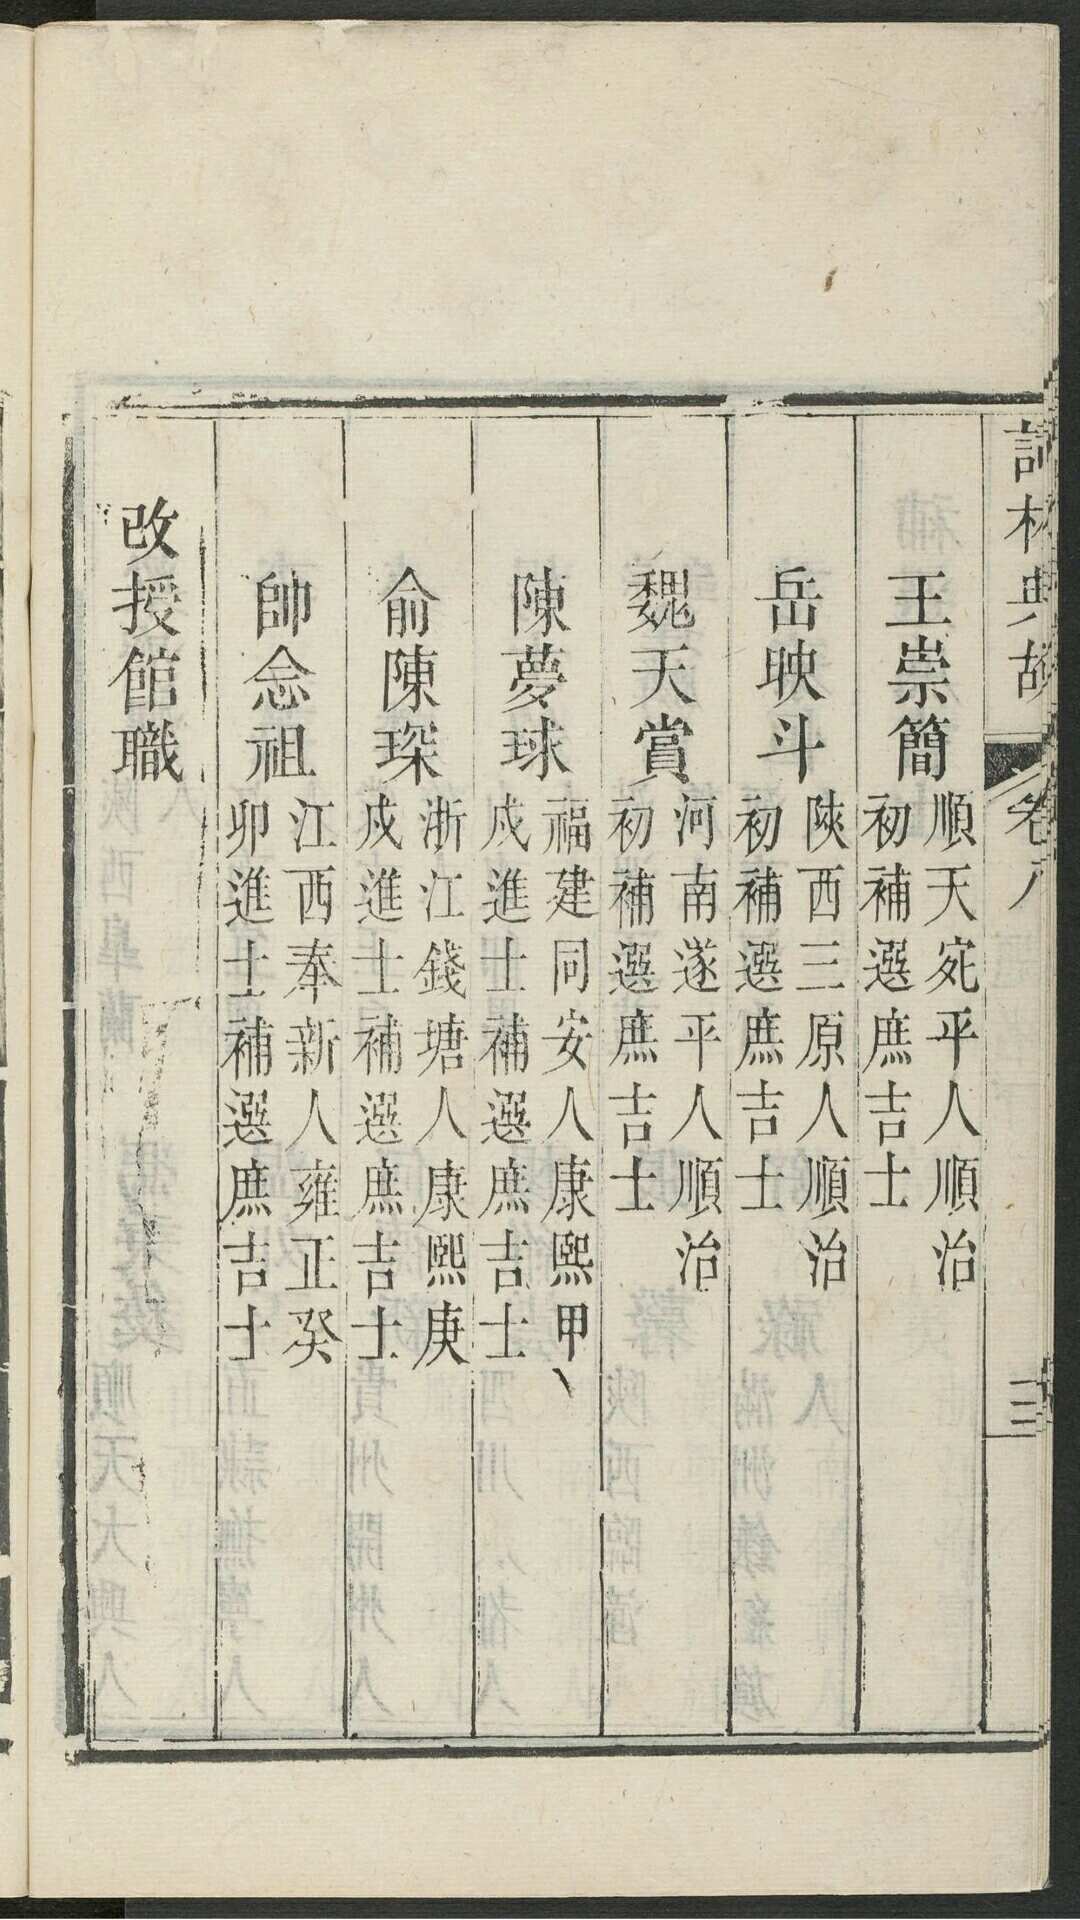 詞林典故 卷八 三
王崇簡 順天宛平人順治
初補選庶吉士
岳映斗 陝西三原人順治
初補選庶吉士
魏天賞 河南遂平人順治
初補選庶吉士
陳夢球 福建同安人康熙甲
戌進士補選庶吉士
俞陳琛 浙江錢塘人康熙庚
戌進士補選庶吉士
帥念祖 江西奉新人雍正癸
卯進士補選庶吉士
改授館職